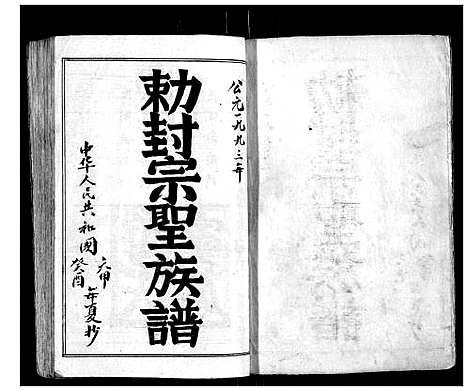 公元一九九三年
勅封宗聖族譜
中华人民共和國六甲癸酉年夏抄